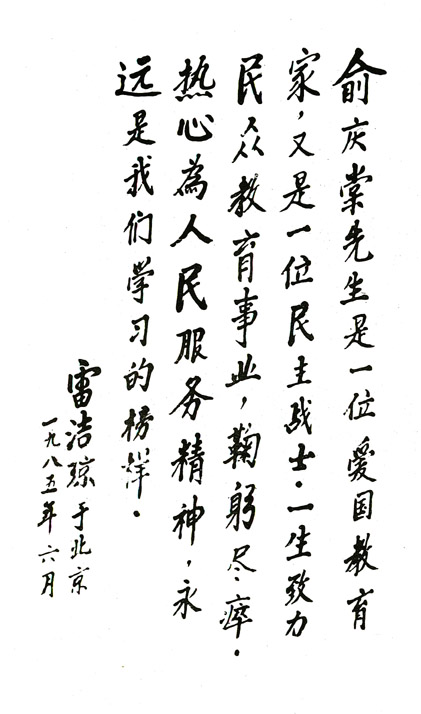 俞庆棠先生是一位爱国教育
家，又是一位民主战士．一生致力
民众教育事业，鞠躬尽瘁．
热心為人民服务精神，永
远是我们学习的榜样．
雷洁琼于北京
一九八五年六月